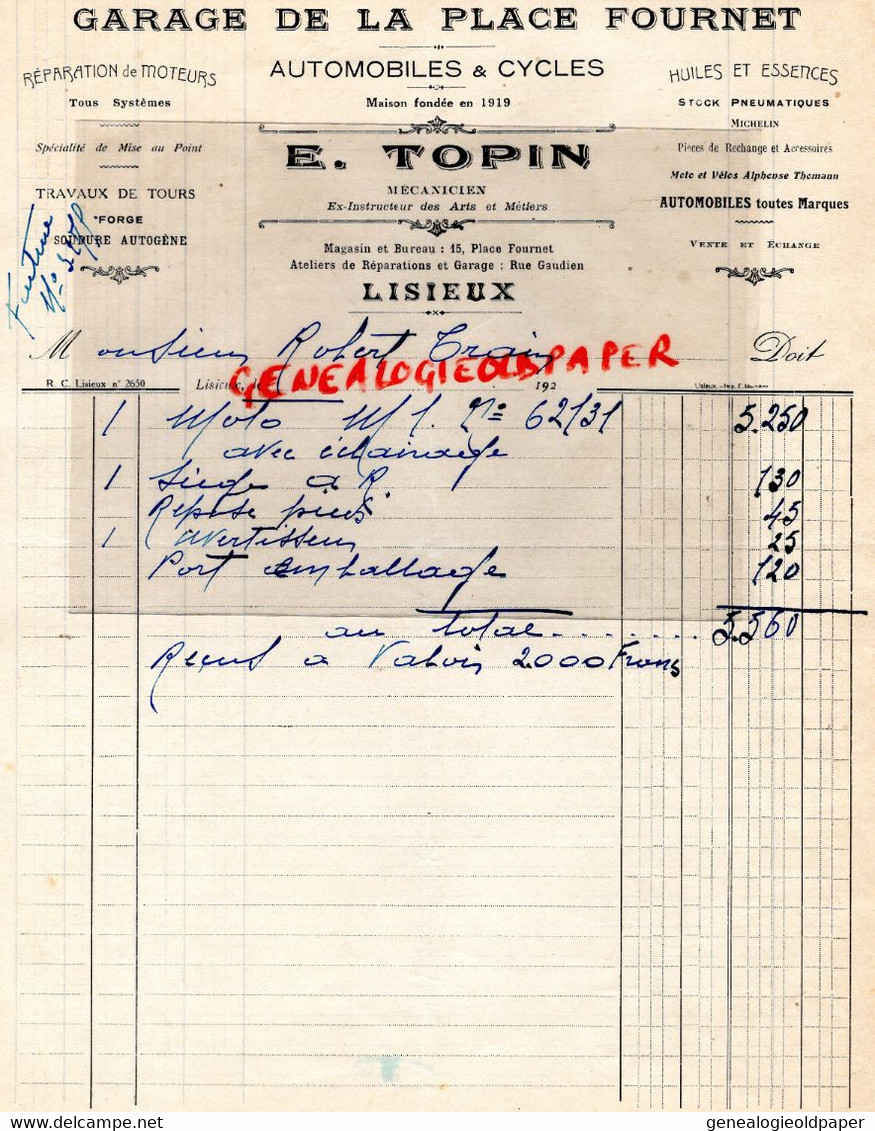 GARAGE DE LA PLACE FOURNET
AUTOMOBILES & CYCLES
Maison fondée en 1919
RÉPARATION de MOTEURS
Tous Systèmes
Spécialité de Mise au Point
TRAVAUX DE TOURS
FORGE
SOUDURE AUTOGÈNE
HUILES ET ESSENCES
STOCK PNEUMATIQUES
MICHELIN
Pièces de Rechange et Accessoires
Moto et Vélos Alphonse Thomann
AUTOMOBILES toutes Marques
VENTE ET ÉCHANGE
E. TOPIN
MÉCANICIEN
Ex-Instructeur des Arts et Métiers
Magasin et Bureau : 15, Place Fournet
Ateliers de Réparations et Garage : Rue Gaudien
LISIEUX
Facture
N°
Monsieur Robert Doit
GENEALOGIEOLDPAPER
R. C. Lisieux n° 2650 Lisieux, le 192
1 Moto M1. N° 62131 5.250
avec éclairage
1 Siège a R 130
Repose pieds 45
1 avertisseur 25
Port emballage 120
au total....... 5.560
Reçus a Valoir 2.000 Francs
delcampe.net
genealogieoldpaper